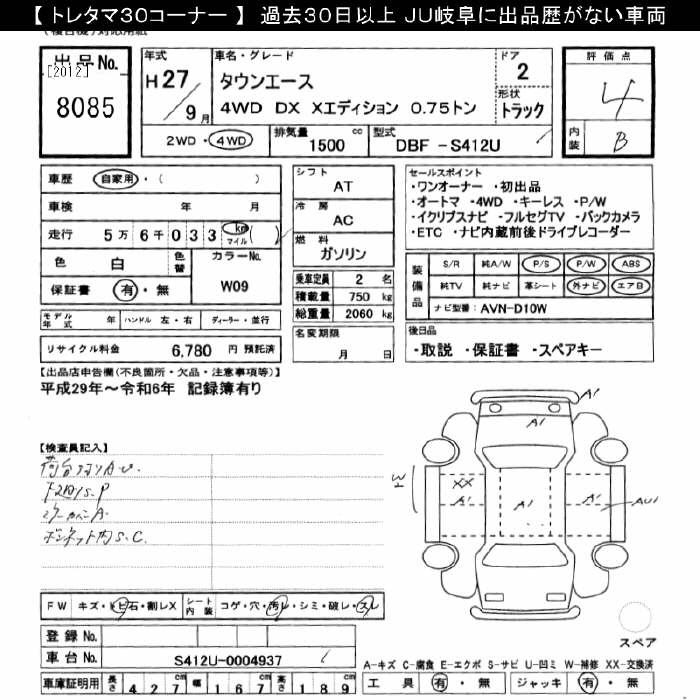 【 トレタマ30コーナー 】 過去30日以上 JU岐阜に出品歴がない車両
出品No.
[2012]
8085
年式
H27/9月
車名・グレード
タウンエース
4WD DX Xエディション 0.75トン
ドア
2
形状
トラック
2WD・4WD
排気量 1500 cc
型式 DBF -S412U
評価点
4
内装
B
車歴 自家用・( )
車検 年 月
走行 5万6千033 km マイル ( )
色 白 色替
カラーNo.
W09
保証書 有・無
モデル年式 年 ハンドル 左・右 ディーラー・並行
リサイクル料金 6,780 円 預託済
シフト
AT
冷房
AC
燃料
ガソリン
乗車定員 2 名
積載量 750 kg
総重量 2060 kg
名変期限
月 日
セールスポイント
・ワンオーナー ・初出品
・オートマ ・4WD ・キーレス ・P/W
・イクリプスナビ ・フルセグTV ・バックカメラ
・ETC ・ナビ内蔵前後ドライブレコーダー
装備品
S/R 純A/W P/S P/W ABS
純TV 純ナビ 革シート 外ナビ エアB
ナビ型番 AVN-D10W
後日品
・取説 ・保証書 ・スペアキー
【出品店申告欄(不良箇所・欠品・注意事項等)】
平成29年～令和6年 記録簿有り
【検査員記入】
下回りS.P
ボンネット内S.C.
A1
A1
W
XX
A1
A1
A1
AU1
スペア
FW キズ・トビ石・割レX
シート内装 コゲ・穴・汚レ・シミ・破レ・スレ
登録No.
車台No. S412U-0004937
A-キズ C-腐食 E-エクボ S-サビ U-凹ミ W-補修 XX-交換済
車庫証明用 長さ 427 幅 167 高さ 189
工具 有・無 ジャッキ 有・無